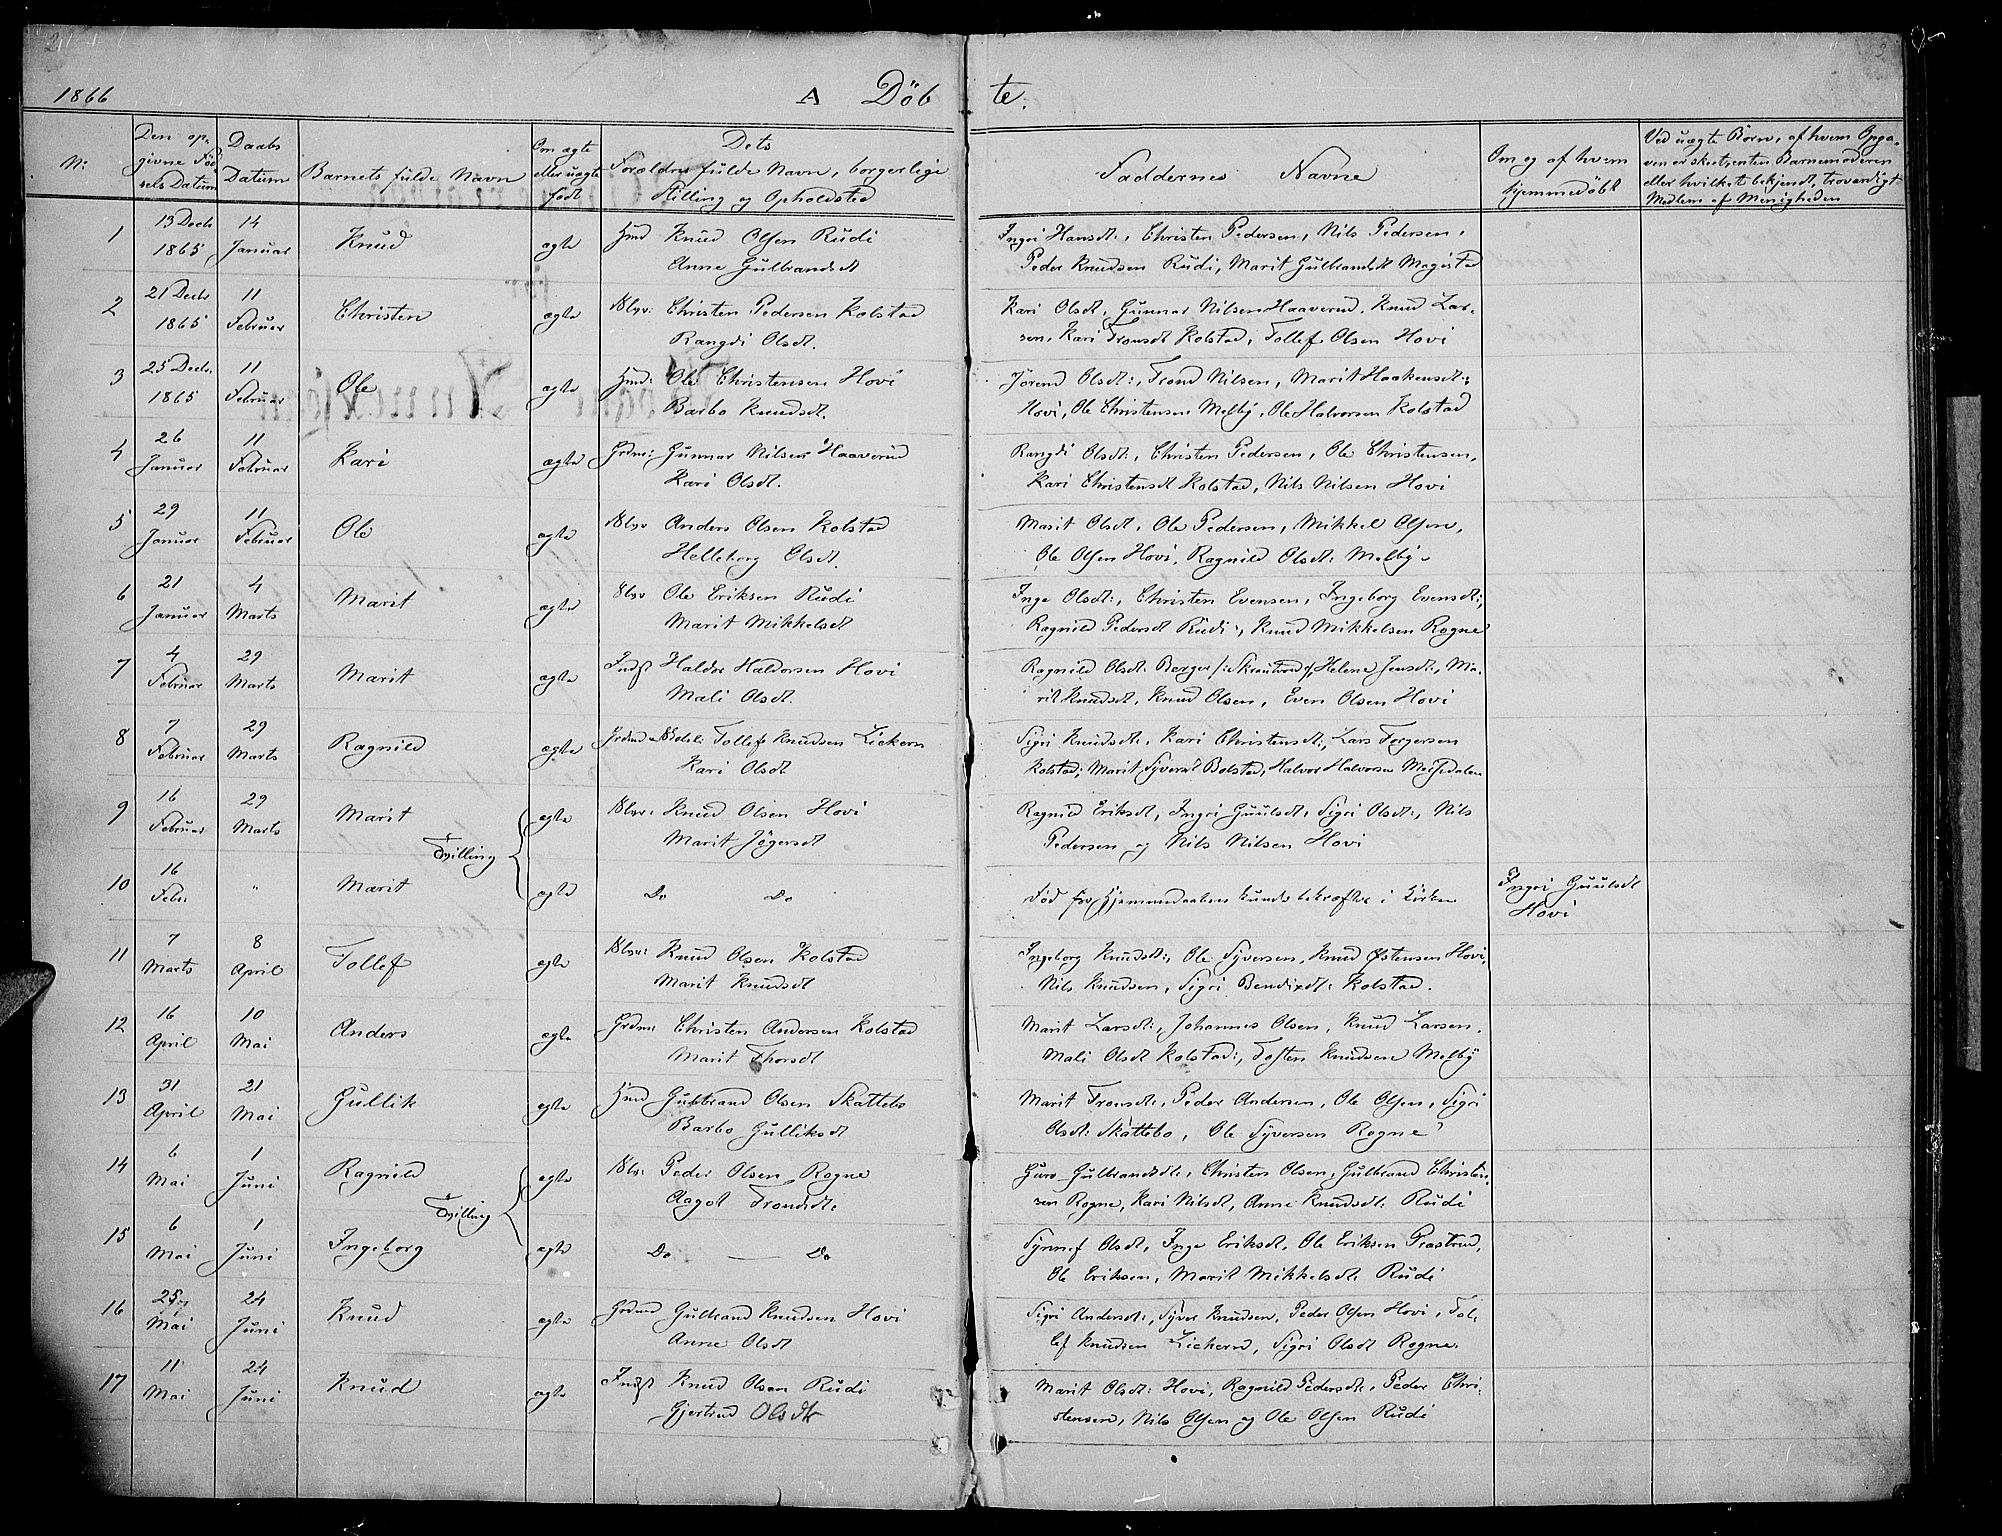 2
3
1866
A Döb te.
No
Den opgivne Fødsels Datum
Daabs Datum
Barnets fulde Navn
Om ægte eller uægte født
Dets Forældres fulde Navn, borgerlige Stilling og Opholdsted
Faddernes Navne
Om og af hvem hjemmedöbt
Ved uægte Børn, af hvem Opgaven er skeet, enten Barnemoderen eller hvilket bekjendt, troværdigt Medlem af Menigheden
1 13 Decb 1865 14 Januar Knud ægte Knud Olsen Rudi
Anne Gulbrandsdt
Ingri Hansdt:, Christen Pedersen, Nils Pedersen,
Peder Knudsen Rudi, Marit Gulbrandsdt Magistad
2 21 Decbr 1865 11 Februar Christen ægte Christen Pedersen Kolstad
Rangdi Olsdt.
Kari Olsdt, Gunnar Nilsen Haaverud, Knud Lar-
sen, Kari Tronsdt Kolstad, Tollef Olsen Hovi
3 25 Decbr 1865 11 Februar Ole ægte Ole Christensen Hovi
Barbo Knudsdt.
Jörend Olsdt:, Trond Nilsen, Marit Haakensdt:
Hovi, Ole Christensen Melby, Ole Halvorsen Kolstad
4 26 Januar 11 Februar Kari ægte Grdm: Gunnar Nilsen Haaverud
Kari Olsdt.
Rangdi Olsdt:, Christen Pedersen, Ole Christensen,
Kari Christensdt Kolstad, Nils Nilsen Hovi
5 29 Januar 11 Februar Ole ægte Anders Olsen Kolstad
Helleborg Olsdt.
Marit Olsdt, Ole Pedersen, Mikkel Olsen,
Ole Olsen Hovi, Ragnild Olsdt: Melby
6 21 Januar 4 Marts Marit ægte Ole Eriksen Rudi
Marit Mikkelsdt
Inge Olsdt:, Christen Evensen, Ingeborg Evensdt:,
Ragnild Pedersdt Rudi, Knud Mikkelsen Rogne
7 4 Februar 29 Marts Marit ægte Indst Haldor Haldorsen Hovi
Mali Olsdt.
Ragnild Olsdt: Berger /: Skrautvod :/, Helene Jensdt:, Ma-
rit Knudsdt, Knud Olsen, Even Olsen Hovi
8 7 Februar 29 Marts Ragnild ægte Tollef Knudsen Liekern
Kari Olsdt
Sigri Knudsdt, Kari Christensdt:, Lars Torgersen
Kolstad; Marit Syversdt Bolstad, Halvor Halvorsen
9 16 Februar 29 Marts Marit ægte Knud Olsen Hovi
Marit Jögersdt
Ragnild Eriksdt, Ingri Guulsdt, Sigri Olsdt:, Nils
Pedersen og Nils Nilsen Hovi
Tvilling
10 16 Febr " Marit ægte Do Do
Död för Hjemmedaaben kunde bekræftes i Kirken
Ingri Guulsdt
Hovi
11 7 Marts 8 April Tollef ægte Knud Olsen Kolstad
Marit Knudsdt
Ingeborg Knudsdt:, Ole Syversen, Knud Østensen Hovi,
Nils Knudsen, Sigri Bendixdt: Kolstad.
12 16 April 10 Mai Anders ægte Grdm: Christen Andersen Kolstad
Marit Thorsdt
Marit Larsdt:, Johannes Olsen, Knud Larsen,
Mali Olsdt Kolstad:, Tosten Knudsen Melby
13 31 April 21 Mai Gullik ægte Gulbrand Olsen Skattebo
Barbo Gulliksdt
Marit Tronsdt:, Peder Andersen, Ole Olsen, Sigri
Olsdt: Skattebo, Ole Syversen Rogne
14 6 Mai 1 Juni Ragnild ægte Peder Olsen Rogne
Aagot Trondsdt:
Guro Gulbrandsdt:, Christen Olsen, Gulbrand Christen-
sen Rogne, Kari Nilsdt, Anne Knudsdt: Rudi
Tvilling
15 6 Mai 1 Juni Ingeborg ægte Do — Do
Synnef Olsdt, Inge Eriksdt, Ole Eriksen Prastrud,
Ole Eriksen, Marit Mikkelsdt: Rudi
16 25 Mai 24 Juni Knud ægte Grdmd Gulbrand Knudsen Hovi
Anne Olsdt
Sigri Andersdt:, Syver Knudsen, Peder Olsen Hovi, Tol-
lef Knudsen Liekern, Sigri Olsdt Rogne
17 11 Mai 24 Juni Knud ægte Indst Knud Olsen Rudi
Gjertrud Olsdtr
Marit Olsdt: Hovi, Ragnild Pedersdt:, Peder Chri-
stensen, Nils Olsen og Ole Olsen Rudi